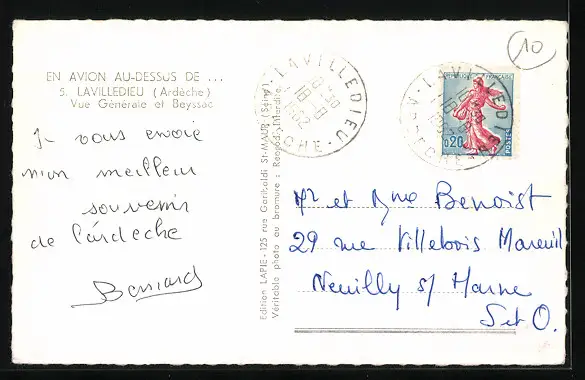 EN AVION AU-DESSUS DE ...
5. LAVILLEDIEU (Ardèche)
Vue Générale et Beyssac
Je vous envoie
mon meilleur
souvenir
de l'ardèche
Bernard
Edition LAPIE - 125 rue Garibaldi St-MAUR (Seine)
Véritable photo au bromure : Reprod. Interdite
LAVILLEDIEU
ARDECHE
LAVILLEDIEU
ARDECHE
10
FRANÇAISE
0,20
POSTES
Mr et Mme Benoist
29 rue Villebois Mareuil
Neuilly s/ Marne
S et O.